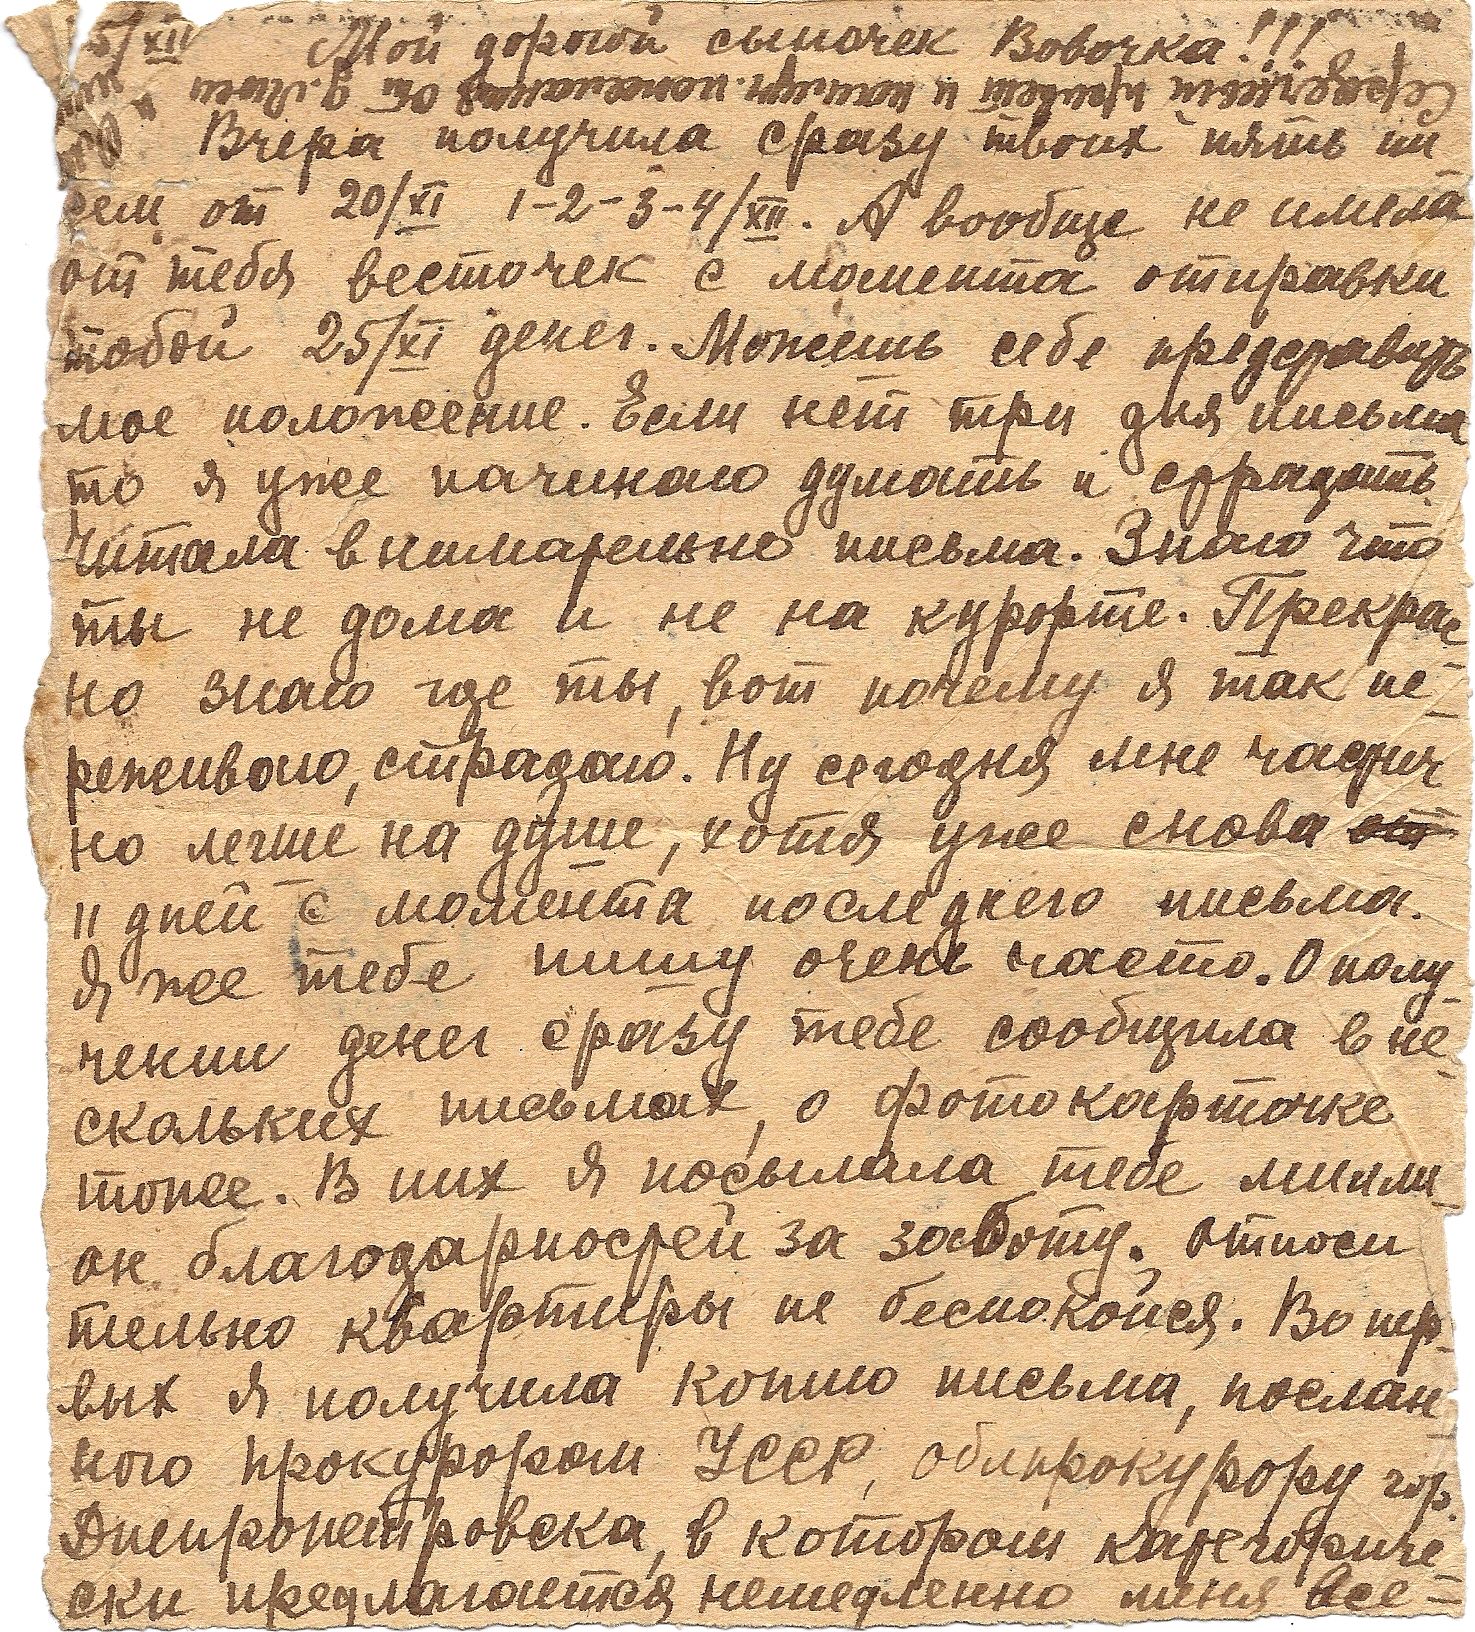 5/XII Мой дорогой сыночек Вовочка!!!
Вчера получила сразу твоих пять пи
сем от 20/XI 1-2-3-4/XII. А вообще не имела
от тебя весточек с момента отправки
тобой 25/XI денег. Можешь себе представить
мое положение. Если нет три дня письма
то я уже начинаю думать и страдать
Читала внимательно письма. Знаю что
ты не дома и не на курорте. Прекрас
но знаю где ты, вот почему я так пе-
реживаю, страдаю. Ну сегодня мне частич
но легше на душе, хотя уже снова
11 дней с момента последнего письма.
Я же тебе пишу очень часто. О полу-
чении денег сразу тебе сообщила в не-
скольких письмах, о фотокарточке
тоже. В них я посылала тебе милли-
он благодарностей за заботу. Относи
тельно квартиры не беспокойся. Во пер-
вых я получила копию письма, послан-
ного прокурором УССР, облпрокурору гор.
Днепропетровска, в котором категориче
ски предлагается немедленно меня все-